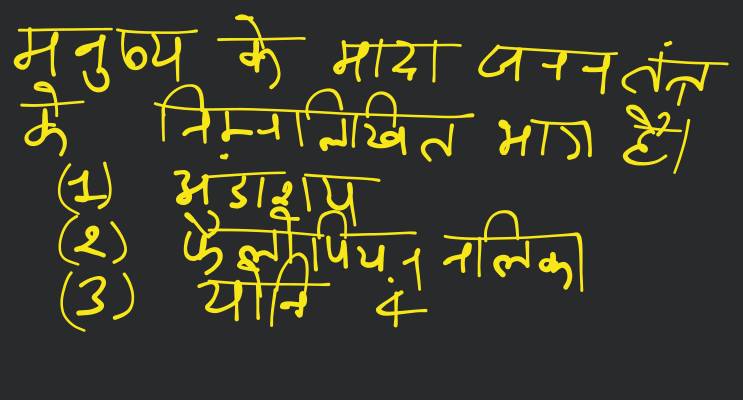 मनुष्य के मादा जनन तंत्र
के निम्नलिखित भाग हैं।
(1) अंडाशय
(2) फैलोपियन नलिका
(3) योनि